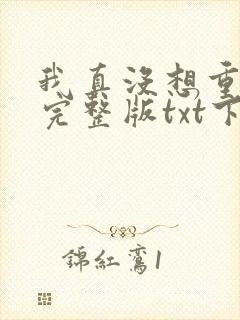 我真没想重
完整版txt下
錦紅鸞1